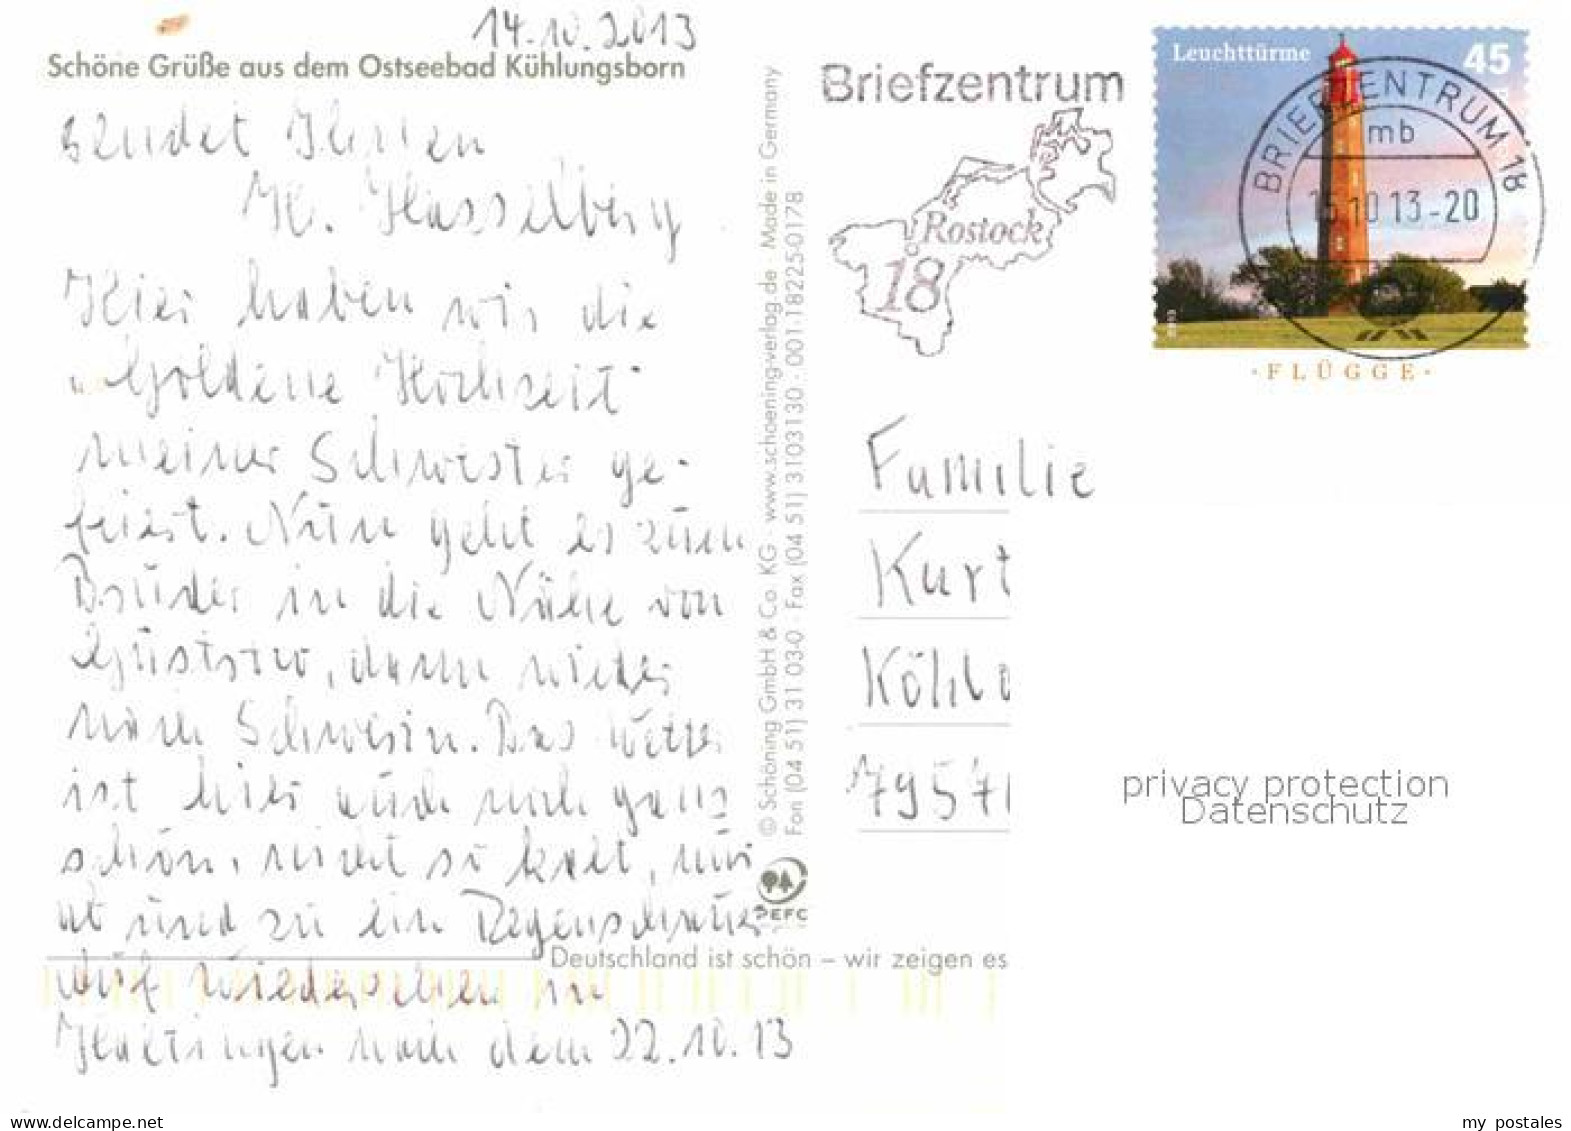 14.10.2013
Schöne Grüße aus dem Ostseebad Kühlungsborn
sendet Ihnen
H. Hasselberg
Hier haben wir die
"Goldene Hochzeit"
meiner Schwester ge-
feiert. Nun geht es zum
Bruder in die Nähe von
Güstrow, dann wieder
nach Schwerin. Das Wetter
ist hier auch noch ganz
schön, nicht so kalt, nur
ab und zu ein Regenschauer
Auf Wiedersehen in
Haltingen nach dem 22.10.13
© Schöning GmbH & Co. KG · www.schoening-verlag.de · Made in Germany
Fon (04 51) 31 03-0 · Fax (04 51) 3103130 · 001.18225-0178
PEFC
Deutschland ist schön – wir zeigen es
Briefzentrum
Rostock
18
Leuchttürme
45
BRIEFZENTRUM 18
mb
15.10.13-20
· FLÜGGE ·
Familie
Kurt
Köhle
7957
privacy protection
Datenschutz
www.delcampe.net
my_postales